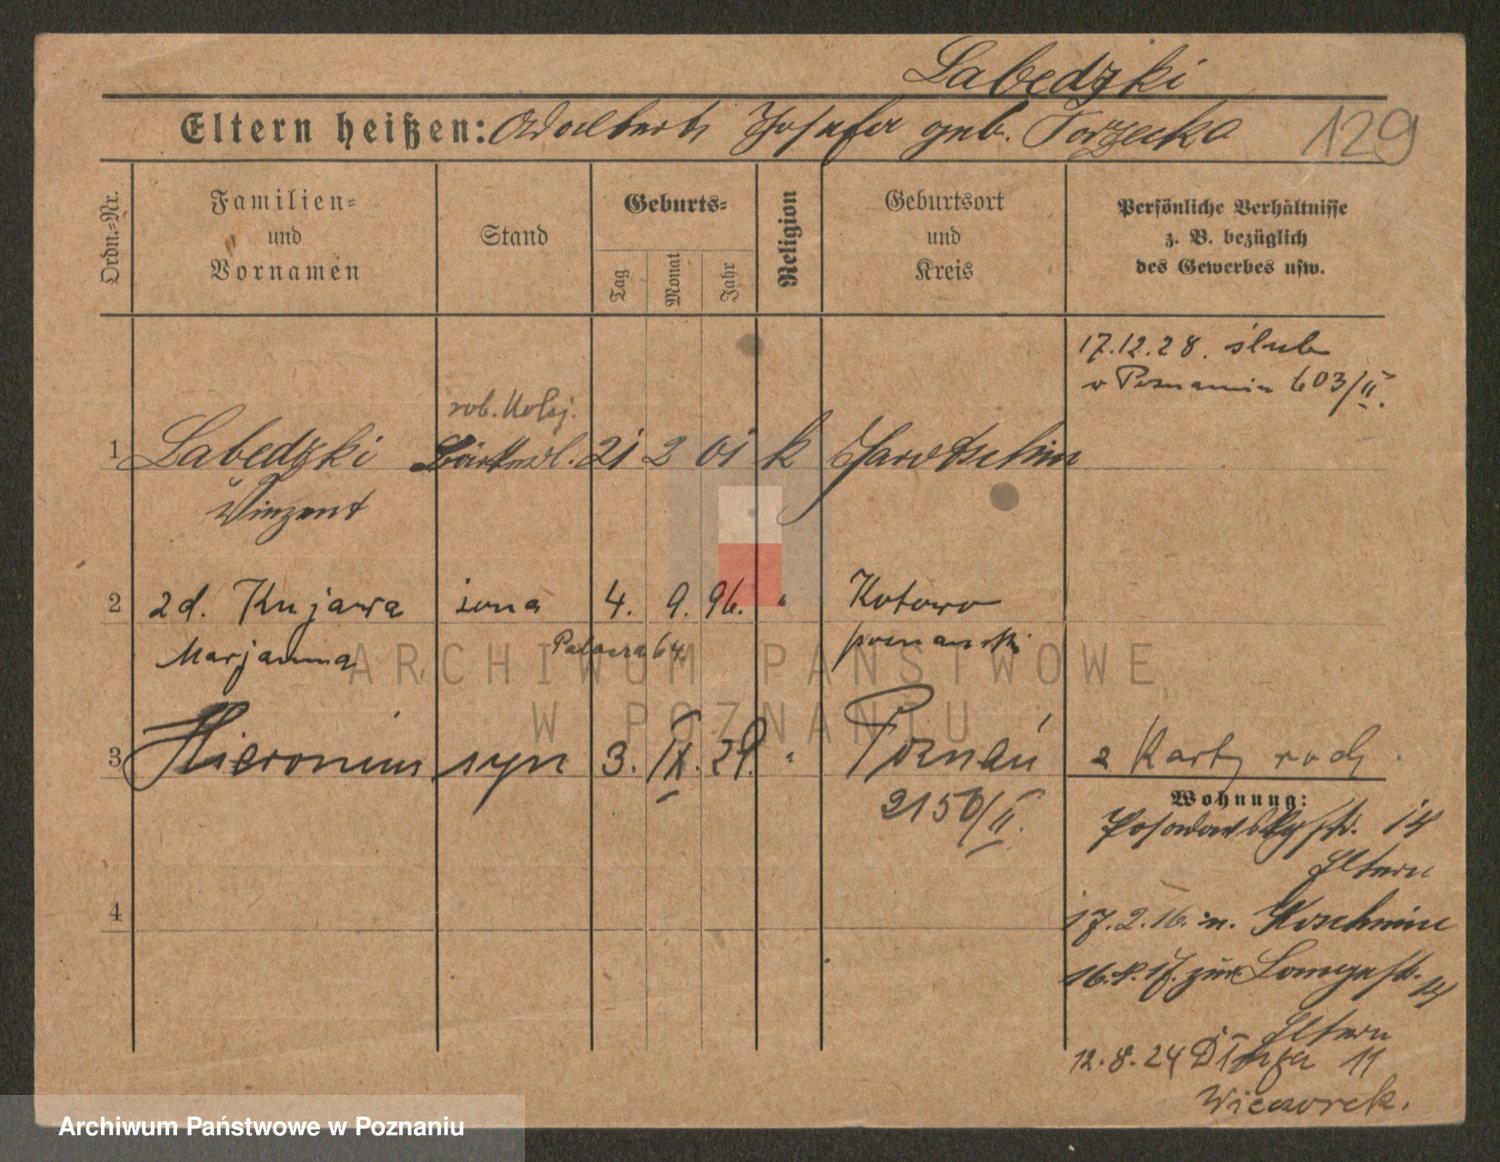 Labedzki
Eltern heißen: Adalbert Josefa geb. Torzecka 129
Ordn.-Nr.
Familien-
und
Vornamen
Stand
Geburts-
Tag
Monat
Jahr
Religion
Geburtsort
und
Kreis
Persönliche Verhältnisse
z. B. bezüglich
des Gewerbes usw.
17.12.28. ślub
w Poznaniu 603/II.
rob. Kolej.
1 Labedzki 21 2 01 k Jarotschin
Vinzent
2 2d. Kujawa żona 4. 9. 96. " Kotowo
Marjanna 64 poznański
3 Hieronim syn 3. IX. 29. " Poznań 2 Karty rodz.
2150/II.
Wohnung:
Posadowskystr. 14
Eltern
4 17.2.16. n. Koschmin
16.8.17. zur 14
Eltern
12.8.24 Długa 11
Wieczorek.
ARCHIWUM PAŃSTWOWE
W POZNANIU
Archiwum Państwowe w Poznaniu